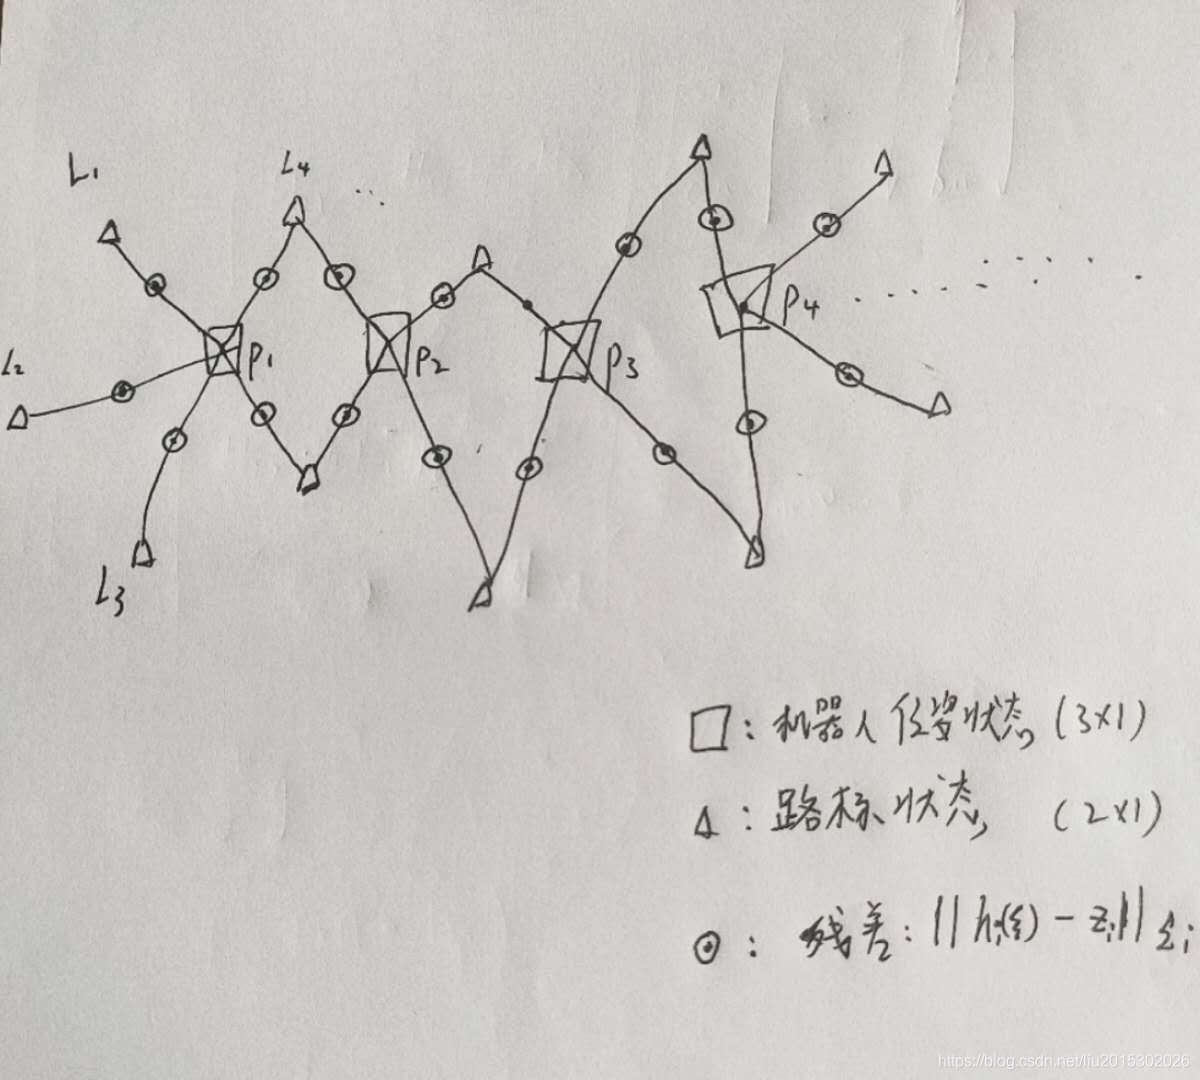 L1
L4
...
L2
P1
P2
P3
P4
L3
□: 机器人位姿状态 (3×1)
△: 路标状态 (2×1)
⊙: 残差: || hᵢ(ξ) - zᵢ || Σᵢ
https://blog.csdn.net/liu2015302026